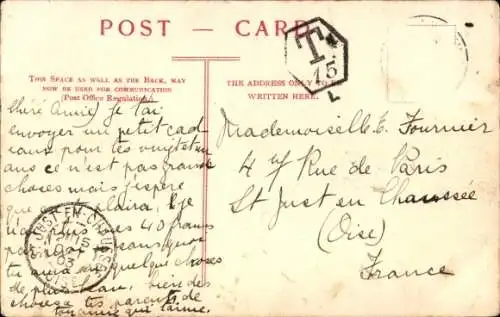 POST - CARD
THIS SPACE AS WELL AS THE BACK, MAY
NOW BE USED FOR COMMUNICATION
(Post Office Regulation)
THE ADDRESS ONLY TO BE
WRITTEN HERE.
T
15
L
Chère Amie, je t'ai
envoyer un petit cad
eaux pour tes vingt et un
ans ce n'est pas grande
choses mais j'espère
que plaira,
plus 40 francs
quoi
tu aura quelque choses
de plus beau, bien des
choses a tes parents de
ton amie qui t'aime.
Mademoiselle E. Fournier
4 Rue de Paris
St Just en Chaussée
(Oise)
France
ST JUST-EN-CHAUSSÉE